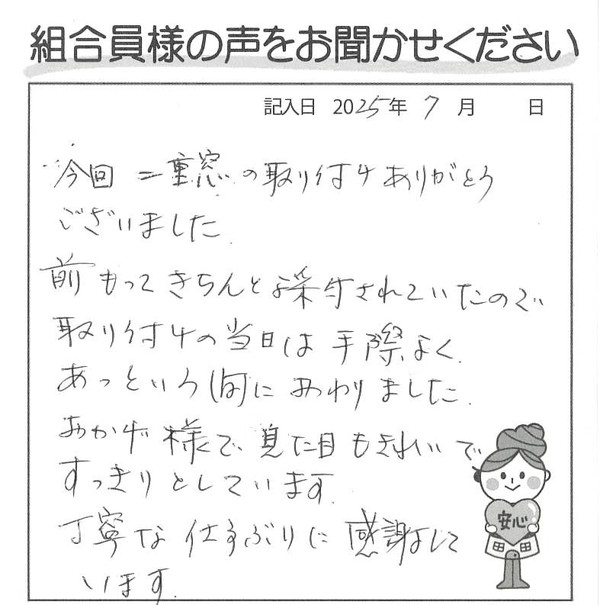 組合員様の声をお聞かせください
記入日 2025年 7月 日
今回 二重窓の取り付けありがとう
ございました.
前もってきちんと採寸されていたので
取り付けの当日は手際よく.
あっという間におわりました.
おかげ様で、見た目もきれいで
すっきりとしています.
丁寧な仕事ぶりに感謝して
います.
安心